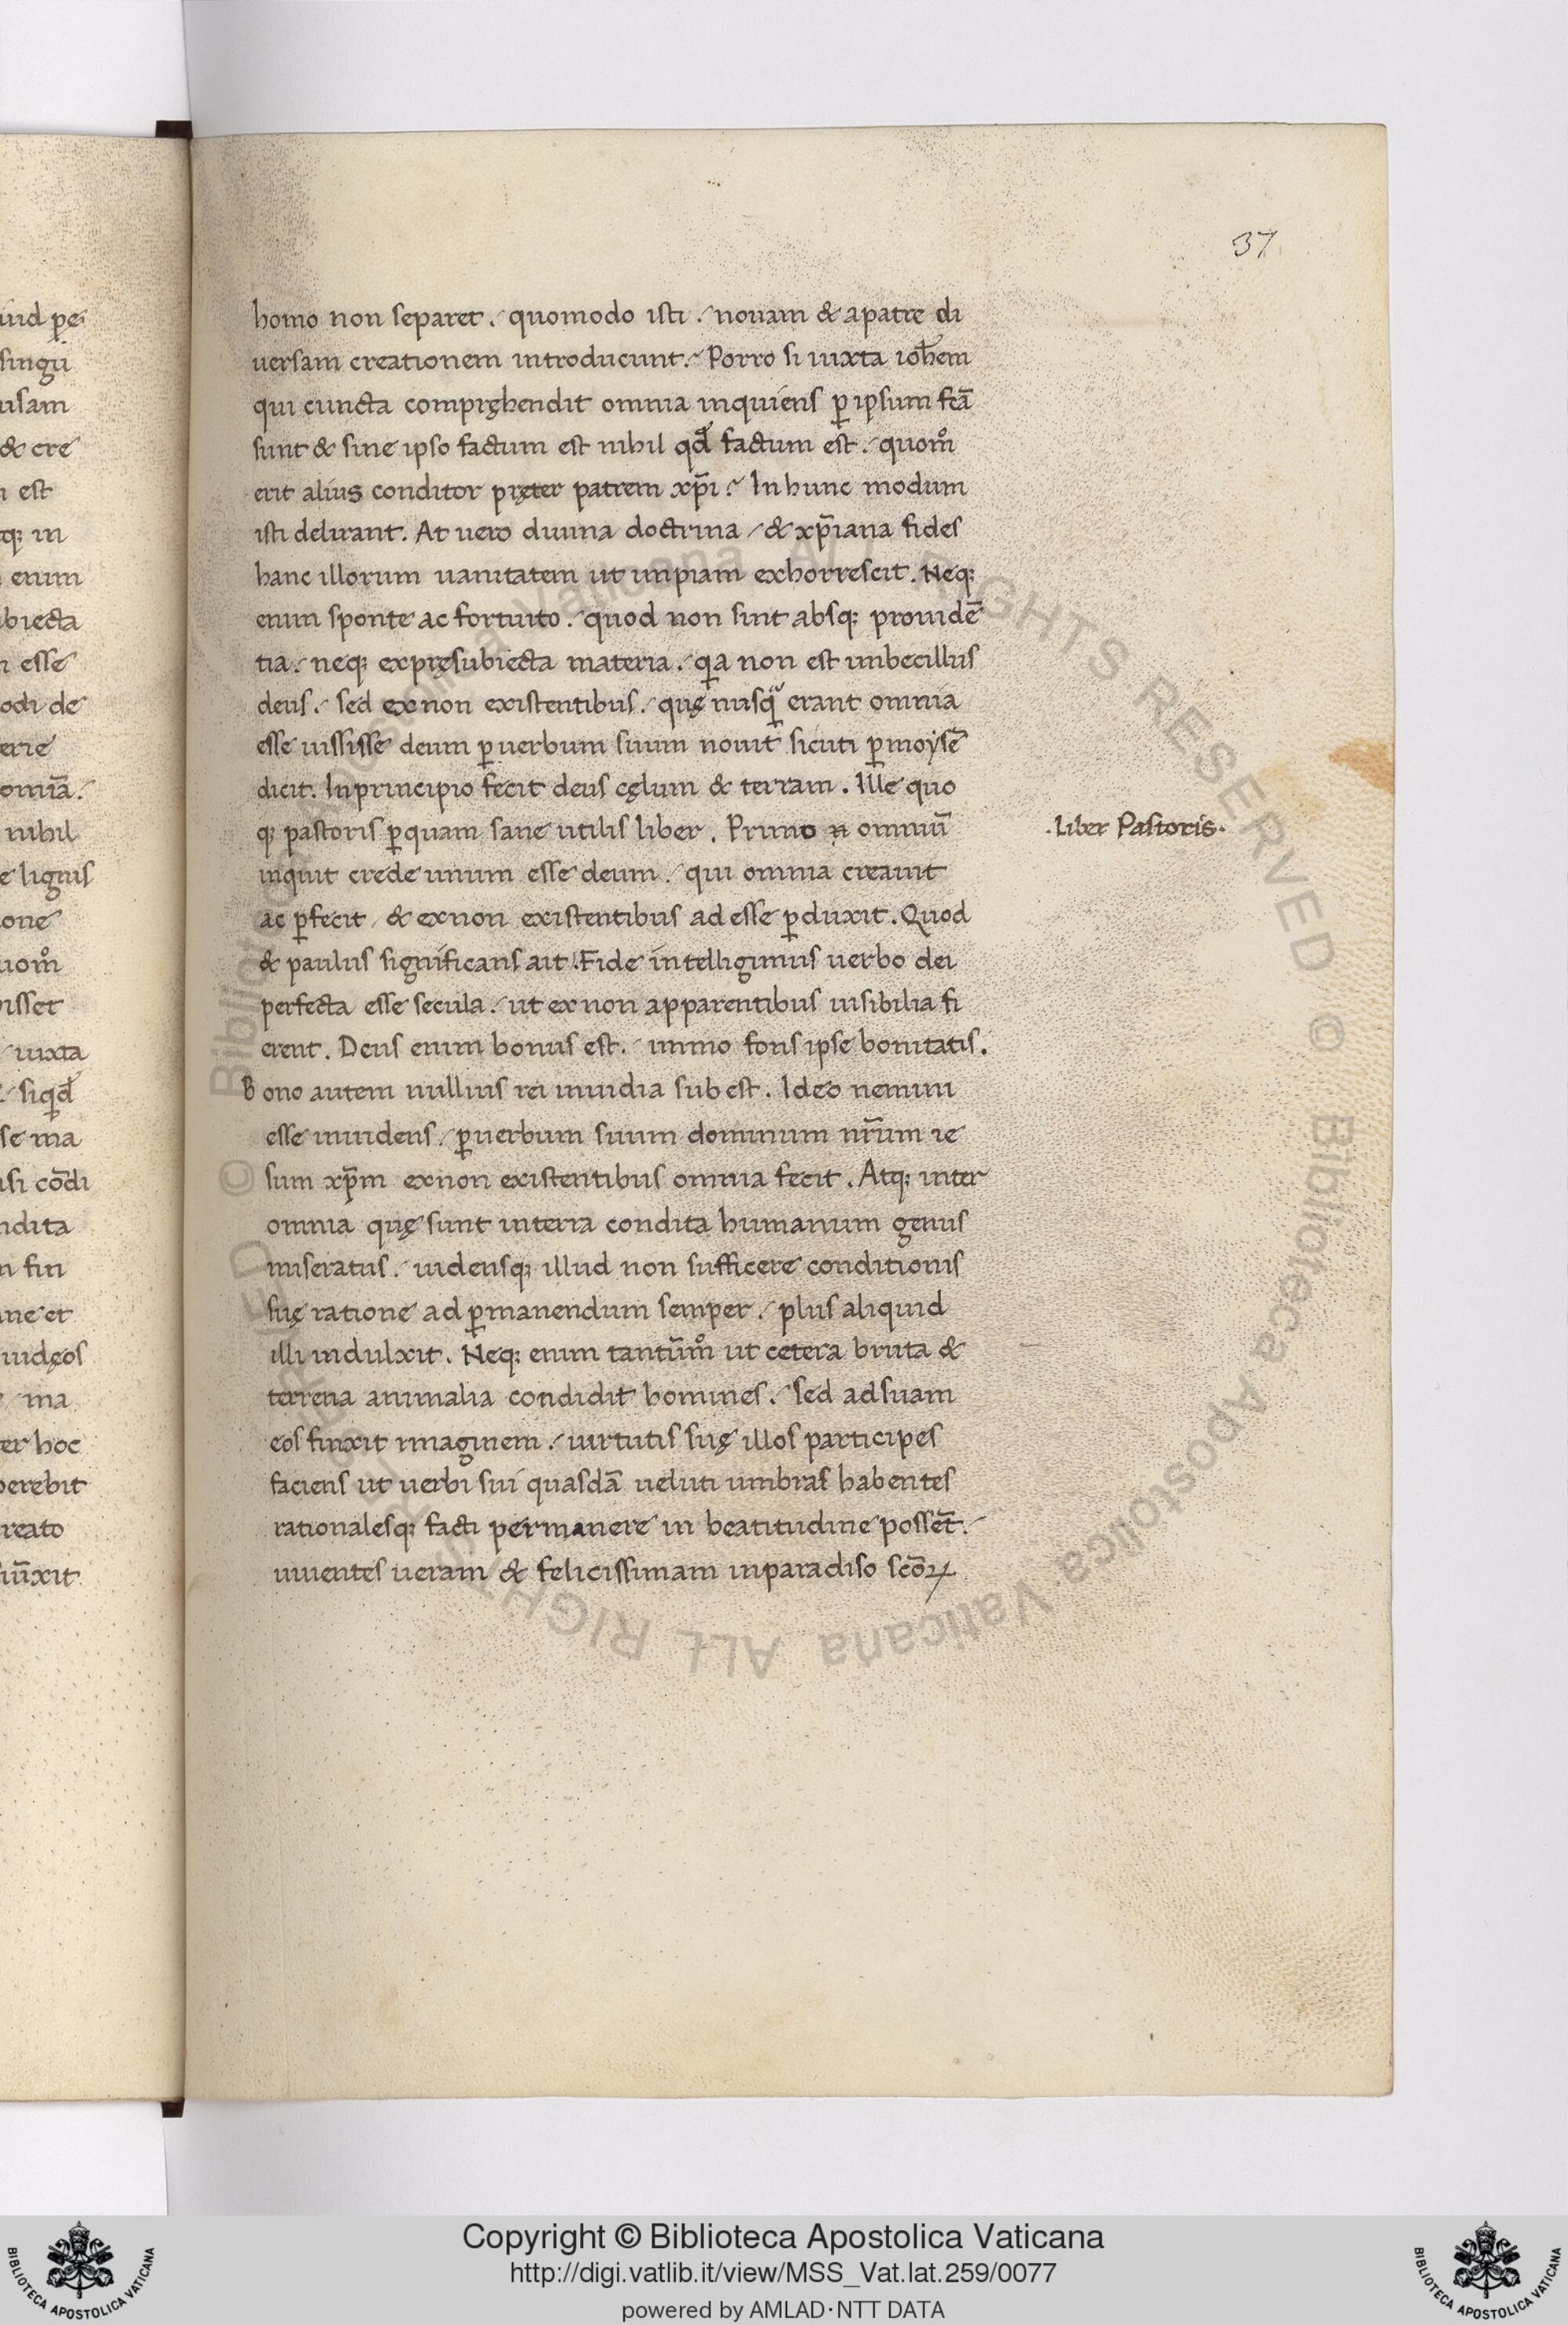 37
homo non separet. quomodo isti. nouam & apatre di
uersam creationem introducunt. Porro si iuxta ioh̄em
qui cuncta compręhendit omnia inquiens ꝑ ipsum fc̄a
sunt & sine ipso factum est nihil qđ factum est. quom̊
erit alius conditor pręter patrem xp̄i? In hunc modum
isti delirant. At uero diuina doctrina / & xp̄iana fides
hanc illorum uanitatem ut impiam exhorrescit. Neqꝫ
enim sponte ac fortuito. quod non sint absqꝫ prouidē
tia. neqꝫ expręsubiecta materia. qa non est imbecillus
deus. sed exnon existentibus. quę nusq̃ erant omnia
esse iussisse deum ꝑ uerbum suum nouit sicuti ꝑ moysē
dicit. Inprincipio fecit deus cęlum & terram. Ille quo
qꝫ pastoris ꝑquam sane utilis liber. Primo n omniū
·Liber Pastoris·
inquit crede unum esse deum. qui omnia creauit
ac ꝑfecit / & exnon existentibus ad esse ꝑduxit. Quod
& paulus significans ait. Fide intelligimus uerbo dei
perfecta esse secula. ut ex non apparentibus uisibilia fi
erent. Deus enim bonus est. immo fons ipse bonitatis.
Bono autem nullius rei inuidia subest. Ideo nemini
esse inuidens. ꝑ uerbum suum dominum nr̄um ie
sum xp̄m exnon existentibus omnia fecit. Atqꝫ inter
omnia quę sunt interra condita humanum genus
miseratus. uidensqꝫ illud non sufficere conditionis
suę ratione ad ꝑmanendum semper. plus aliquid
illi indulxit. Neqꝫ enim tantūm̊ ut cetera bruta &
terrena animalia condidit homines. sed adsuam
eos finxit imaginem. uirtutis suę illos participes
faciens ut uerbi sui quasdā ueluti umbras habentes
rationalesqꝫ facti permanere in beatitudine possēt.
uiuentes ueram & felicissimam inparadiso scōꝝ
Copyright © Biblioteca Apostolica Vaticana
http://digi.vatlib.it/view/MSS_Vat.lat.259/0077
powered by AMLAD·NTT DATA